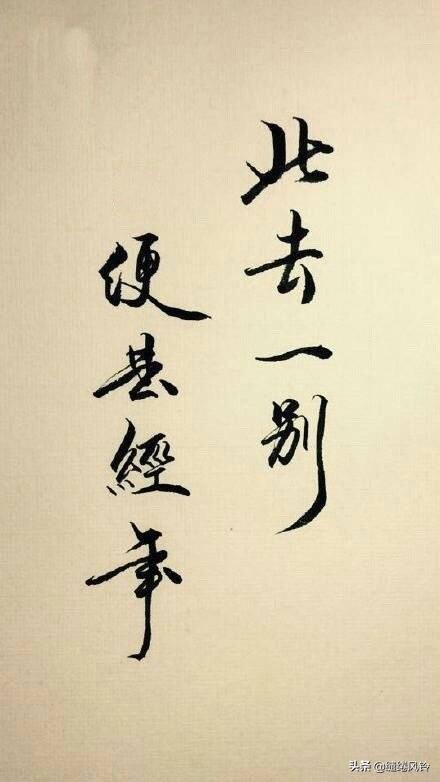 此去一别
便是經年
头条 @风铃